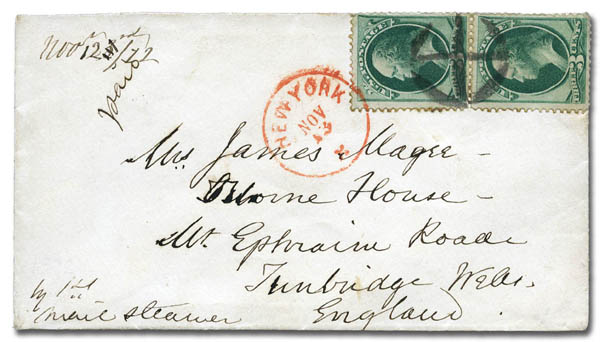 Nov 12 /72
paid
NEW YORK
NOV
13
POSTAGE
Mrs James Magee -
Thorne House -
Mt. Ephraim Road
Tunbridge Wells.
England.
by 1st
mail steamer